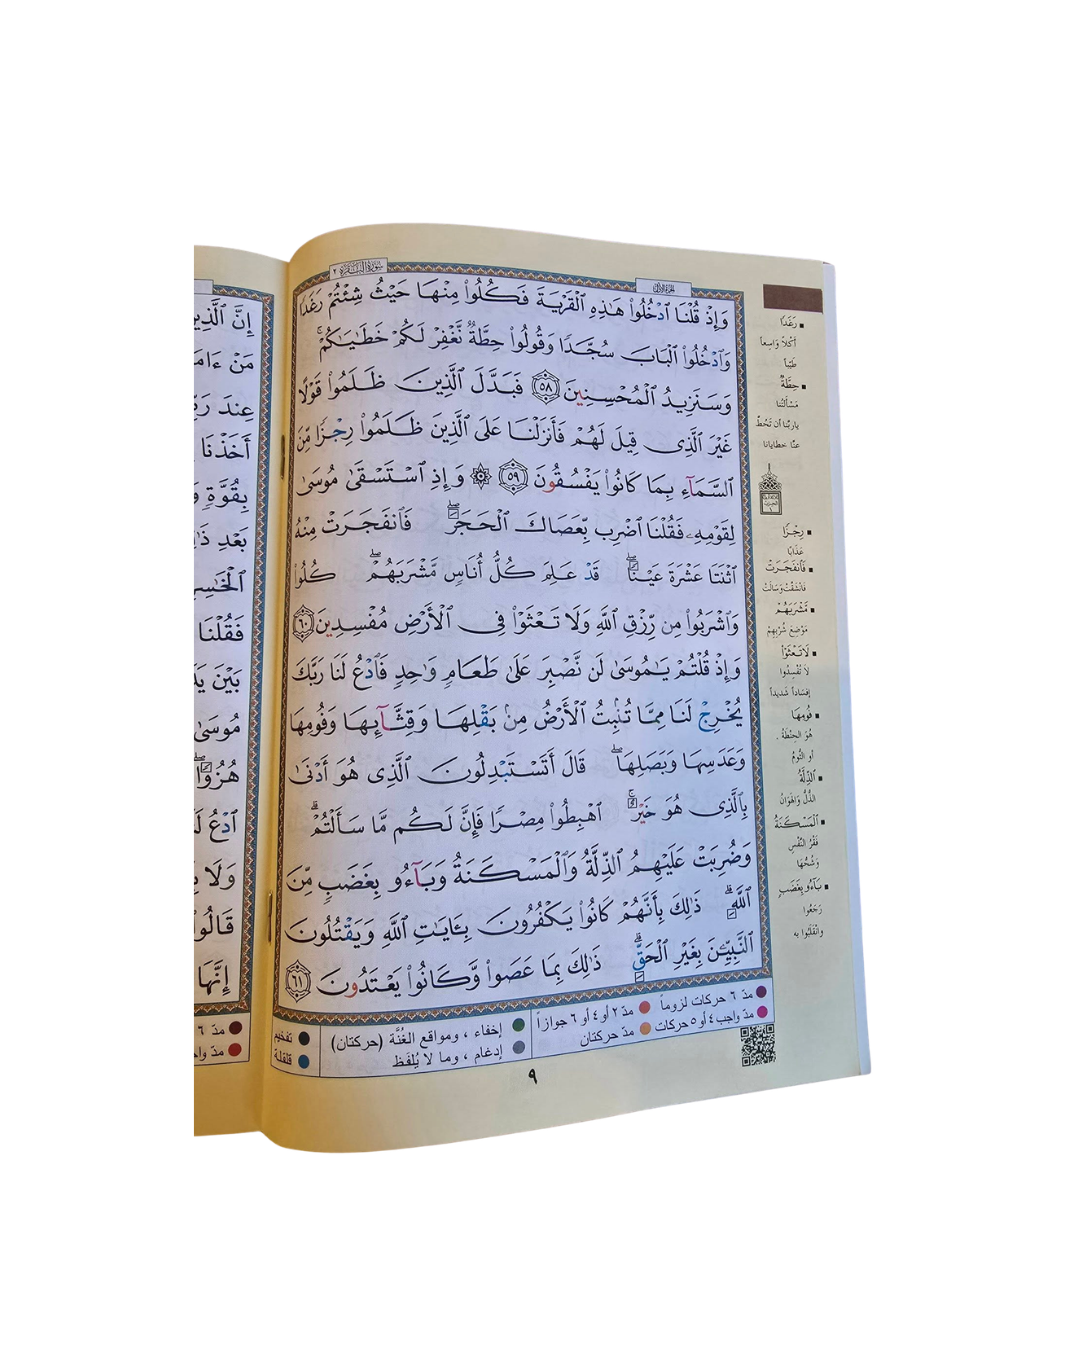 الجزء الأول
سورة البقرة ٢
وَإِذْ قُلْنَا ٱدْخُلُوا۟ هَٰذِهِ ٱلْقَرْيَةَ فَكُلُوا۟ مِنْهَا حَيْثُ شِئْتُمْ رَغَدًا
وَٱدْخُلُوا۟ ٱلْبَابَ سُجَّدًا وَقُولُوا۟ حِطَّةٌ نَّغْفِرْ لَكُمْ خَطَٰيَٰكُمْ ۚ
وَسَنَزِيدُ ٱلْمُحْسِنِينَ ٥٨ فَبَدَّلَ ٱلَّذِينَ ظَلَمُوا۟ قَوْلًا
غَيْرَ ٱلَّذِى قِيلَ لَهُمْ فَأَنزَلْنَا عَلَى ٱلَّذِينَ ظَلَمُوا۟ رِجْزًا مِّنَ
ٱلسَّمَآءِ بِمَا كَانُوا۟ يَفْسُقُونَ ٥٩ ۞ وَإِذِ ٱسْتَسْقَىٰ مُوسَىٰ
لِقَوْمِهِۦ فَقُلْنَا ٱضْرِب بِّعَصَاكَ ٱلْحَجَرَ ۖ فَٱنفَجَرَتْ مِنْهُ
ٱثْنَتَا عَشْرَةَ عَيْنًا ۖ قَدْ عَلِمَ كُلُّ أُنَاسٍ مَّشْرَبَهُمْ ۖ كُلُوا۟
وَٱشْرَبُوا۟ مِن رِّزْقِ ٱللَّهِ وَلَا تَعْثَوْا۟ فِى ٱلْأَرْضِ مُفْسِدِينَ ٦٠
وَإِذْ قُلْتُمْ يَٰمُوسَىٰ لَن نَّصْبِرَ عَلَىٰ طَعَامٍ وَٰحِدٍ فَٱدْعُ لَنَا رَبَّكَ
يُخْرِجْ لَنَا مِمَّا تُنۢبِتُ ٱلْأَرْضُ مِنۢ بَقْلِهَا وَقِثَّآئِهَا وَفُومِهَا
وَعَدَسِهَا وَبَصَلِهَا ۖ قَالَ أَتَسْتَبْدِلُونَ ٱلَّذِى هُوَ أَدْنَىٰ
بِٱلَّذِى هُوَ خَيْرٌ ۚ ٱهْبِطُوا۟ مِصْرًا فَإِنَّ لَكُم مَّا سَأَلْتُمْ ۗ
وَضُرِبَتْ عَلَيْهِمُ ٱلذِّلَّةُ وَٱلْمَسْكَنَةُ وَبَآءُو بِغَضَبٍ مِّنَ
ٱللَّهِ ۗ ذَٰلِكَ بِأَنَّهُمْ كَانُوا۟ يَكْفُرُونَ بِـَٔايَٰتِ ٱللَّهِ وَيَقْتُلُونَ
ٱلنَّبِيِّـۧنَ بِغَيْرِ ٱلْحَقِّ ۗ ذَٰلِكَ بِمَا عَصَوا۟ وَّكَانُوا۟ يَعْتَدُونَ ٦١
رَغَدًا
أكْلاً وَاسِعاً
طَيِّباً
حِطَّةٌ
مَسْأَلَتُنا
يا ربَّنا أن تَحُطَّ
عنَّا خطايانا
رِجْزًا
عَذَابًا
فَٱنفَجَرَتْ
فَانْشَقَّتْ وَسَالَتْ
مَّشْرَبَهُمْ
مَوْضِعَ شُرْبِهِمْ
لَا تَعْثَوْا۟
لَا تُفْسِدُوا
إفسَاداً شَدِيداً
فُومِهَا
هُوَ الحِنْطَةُ .
أو الثُّومُ
ٱلذِّلَّةُ
الذُّلُّ وَالهَوَانُ
ٱلْمَسْكَنَةُ
فَقْرُ النَّفْسِ
وَشُحُّهَا
بَآءُو بِغَضَبٍ
رَجَعُوا
وانْقَلَبُوا به
مدّ ٦ حركات لزوماً
مدّ ٢ أو ٤ أو ٦ جوازاً
إخفاء ، ومواقع الغُنَّة (حركتان)
تفخيم
مدّ واجب ٤ أو ٥ حركات
مدّ حركتان
إدغام ، وما لا يُلفَظ
قلقلة
٩
إِنَّ ٱلَّذِي
مَنْ ءَامَ
عِندَ رَ
أَخَذْنَا
بِقُوَّةٍ
بَعْدِ ذَ
ٱلْخَٰسِ
فَقُلْنَا
بَيْنَ يَ
مُوسَىٰ
هُزُوًا ۖ
ٱدْعُ لَ
وَلَا
قَالُو
إِنَّهَا
مدّ ٦
مدّ واج